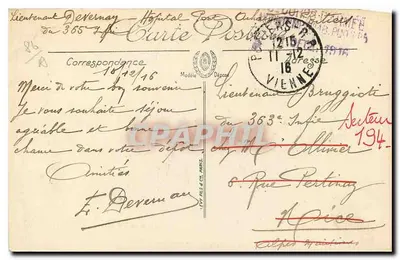 Lieutenant Devernay - Hopital Port
du 365 Infie
Carte Postale
Correspondance
Modèle Déposé
Adresse
POITIERS R.P.
12 15
11 -12
16
VIENNE
10/12/16
Merci de votre bon souvenir
Je vous souhaite séjour
agréable et bonne
chance dans votre dépôt
Amitiés
E. Devernay
Lieutenant Bruggioti
du 363e Infie
Secteur
194
chez Mr Ollivier
8 Rue Pertinax
Nice
Alpes Maritimes
CPARAMA